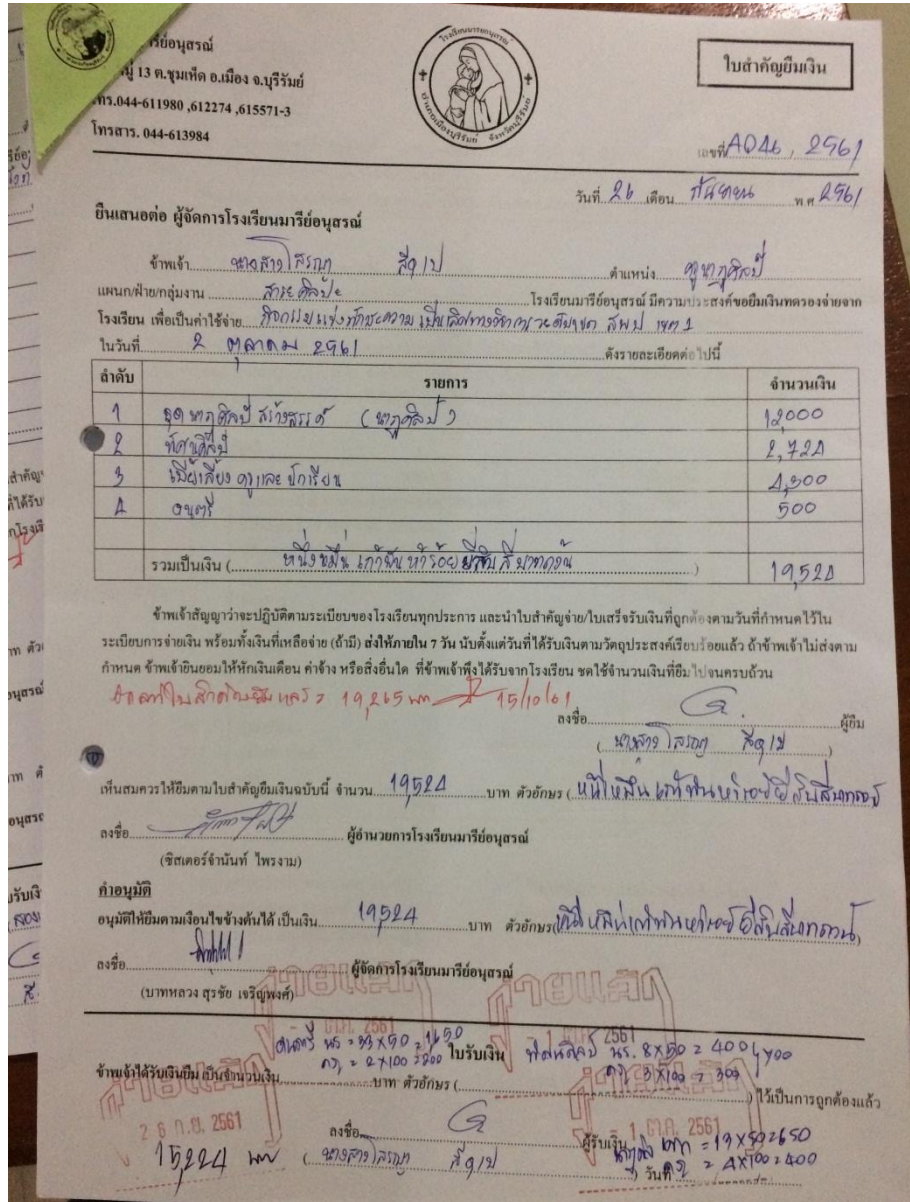 รีย์อนุสรณ์
หมู่ 13 ต.ชุมเห็ด อ.เมือง จ.บุรีรัมย์
โทร.044-611980 ,612274 ,615571-3
โทรสาร. 044-613984
ใบสำคัญยืมเงิน
เลขที่ A046 , 2561
วันที่ 26 เดือน กันยายน พ.ศ 2561
ยื่นเสนอต่อ ผู้จัดการโรงเรียนมารีย์อนุสรณ์
ข้าพเจ้า นางสาวโสรญา สีดุเป ตำแหน่ง ครูนาฏศิลป์
แผนก/ฝ่าย/กลุ่มงาน สาระศิลปะ โรงเรียนมารีย์อนุสรณ์ มีความประสงค์ขอยืมเงินทดรองจ่ายจาก
โรงเรียน เพื่อเป็นค่าใช้จ่าย กิจกรรมแข่งทักษะความเป็นเลิศทางวิชาการระดับเขต สพป เขต 1
ในวันที่ 2 ตุลาคม 2561 ดังรายละเอียดต่อไปนี้
ลำดับ รายการ จำนวนเงิน
1 ชุดนาฏศิลป์สร้างสรรค์ (นาฏศิลป์) 12,000
2 ทัศนศิลป์ 2,724
3 เบี้ยเลี้ยง ครูและนักเรียน 4,300
4 ดนตรี 500
รวมเป็นเงิน ( หนึ่งหมื่นเก้าพันห้าร้อยยี่สิบสี่บาทถ้วน ) 19,524
ข้าพเจ้าสัญญาว่าจะปฏิบัติตามระเบียบของโรงเรียนทุกประการ และนำใบสำคัญจ่าย/ใบเสร็จรับเงินที่ถูกต้องตามวันที่กำหนดไว้ใน
ระเบียบการจ่ายเงิน พร้อมทั้งเงินที่เหลือจ่าย (ถ้ามี) ส่งให้ภายใน 7 วัน นับตั้งแต่วันที่ได้รับเงินตามวัตถุประสงค์เรียบร้อยแล้ว ถ้าข้าพเจ้าไม่ส่งตาม
กำหนด ข้าพเจ้ายินยอมให้หักเงินเดือน ค่าจ้าง หรือสิ่งอื่นใด ที่ข้าพเจ้าพึงได้รับจากโรงเรียน ชดใช้จำนวนเงินที่ยืมไปจนครบถ้วน
19,265 15/10/61
ลงชื่อ ผู้ยืม
( นางสาวโสรญา สีดุเป )
เห็นสมควรให้ยืมตามใบสำคัญยืมเงินฉบับนี้ จำนวน 19,524 บาท ตัวอักษร ( หนึ่งหมื่นเก้าพันห้าร้อยยี่สิบสี่บาทถ้วน
ลงชื่อ ผู้อำนวยการโรงเรียนมารีย์อนุสรณ์
(ซิสเตอร์จำนันท์ ไพรงาม)
คำอนุมัติ
อนุมัติให้ยืมตามเงื่อนไขข้างต้นได้ เป็นเงิน 19,524 บาท ตัวอักษร( หนึ่งหมื่นเก้าพันห้าร้อยยี่สิบสี่บาทถ้วน )
ลงชื่อ ผู้จัดการโรงเรียนมารีย์อนุสรณ์
(บาทหลวง สุรชัย เจริญพงศ์)
จ่ายแล้ว จ่ายแล้ว
ดนตรี นร = 33 x 50 = 1650 ใบรับเงิน ทัศนศิลป์ นร. 8 x 50 = 400
ครู = 2 x 100 = 200 ครู 3 x 100 = 300
ข้าพเจ้าได้รับเงินยืม เป็นจำนวนเงิน บาท ตัวอักษร ( ) ไว้เป็นการถูกต้องแล้ว
26 ก.ย. 2561 ลงชื่อ ผู้รับเงิน 1 ต.ค. 2561 = 13 x 50 = 650
15,224 บาท ( นางสาวโสรญา สีดุเป ) วันที่ ครู = 4 x 100 = 400